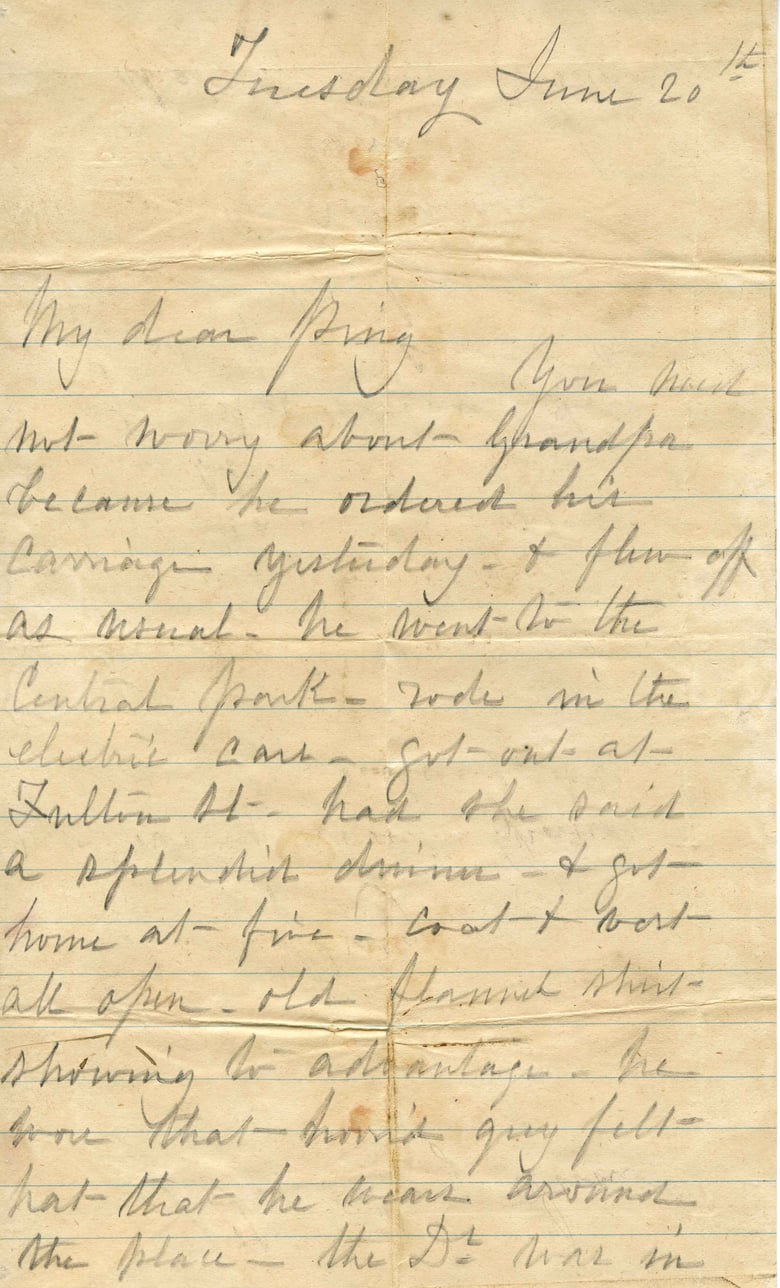 Tuesday June 20th
My dear Ping
You need
not worry about Grandpa
because he ordered his
carriage yesterday - & flew off
as usual - he went to the
Central Park - rode in the
electric cars - got out at
Fulton St - had she said
a splendid dinner - & got
home at five - coat & vest
all open - old flannel shirt
showing to advantage - he
wore that horrid grey felt
hat that he wears around
the place - the Dr. was in